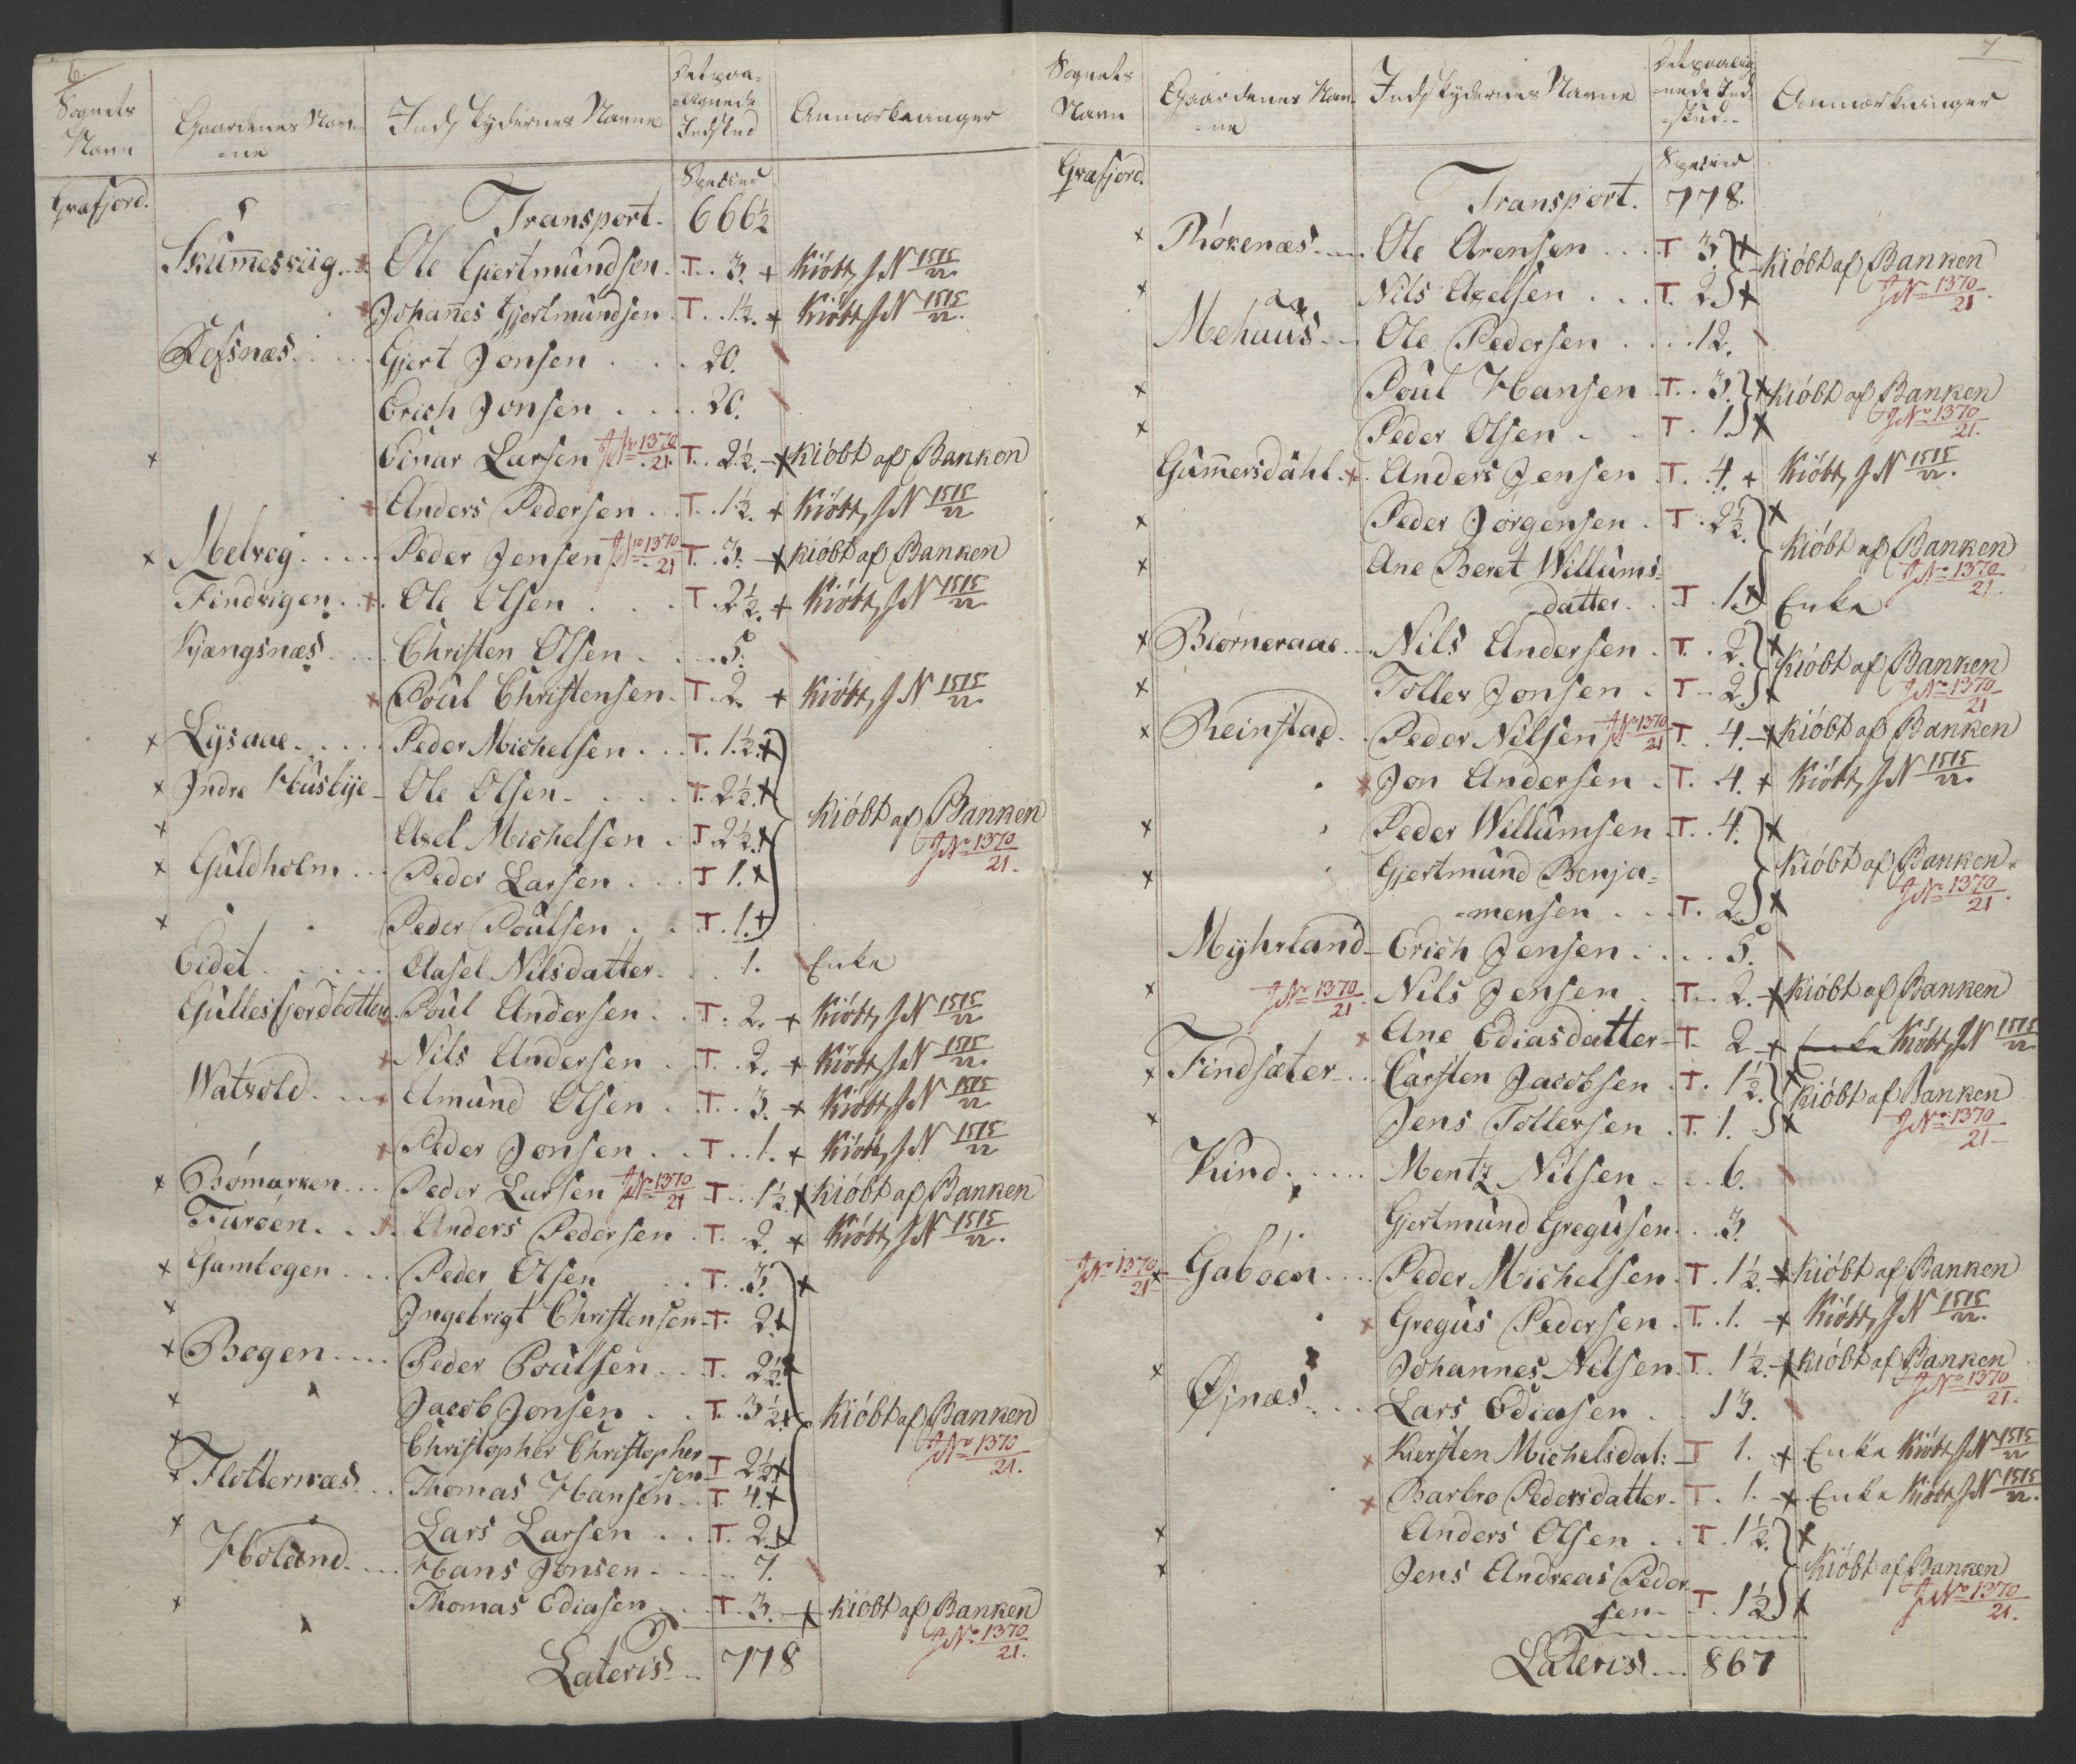 6.
Sognets Navn | Gaardenes Nav-ne | Indskydernes Navne | Det paa-lignede Indskud | Anmærkninger
Grafjord. | Species
Transport. 666½
Skum̄esviig. Ole Giertmundsen. T. 3. + Kiöbt, J N 1515/22.
Johan̄es Gjertmundsen T. 1½. + Kiöbt J N 1515/22.
Refsnæs. Gjert Jonsen 20.
Erich Jonsen 20.
Einar Larsen J№ 1370/21. T. 2½. + Kiöbt af Banken
Anders Pedersen T. 1½. + Kiöbt, J N 1515/22
Melveg. Peder Jensen J№ 1370/21 T. 3. + Kiöbt af Banken
Findvigen. Ole Olsen T. 2½. + Kiöbt, J N 1515/22
Kjængsnæs. Christen Olsen 5.
Poul Christensen. T. 2 + Kiöbt, J N 1515/22.
Lysaae. Peder Michelsen T. 1½. +
Indre Husbÿe Ole Olsen T. 2½. +
Axel Michelsen T 2½. + Kiöbt af Banken
J№ 1370/21.
Guldholm Peder Larsen T 1. +
Peder Poulsen T. 1. +
Eidet. Aasel Nilsdatter. 1. Enke
Gullesfjordbotten Poul Andersen T. 2. + Kiöbt, J N 1515/22
Nils Andersen T. 2. + Kiöbt, J N 1515/22
Watvold. Amund Olsen T. 3. + Kiöbt, J N 1515/22
Peder Jonsen T. 1. + Kiöbt, J N 1515/22
Bömarken Peder Larsen J№ 1370/21 T. 1½. + Kiöbt af Banken
Furöen. Anders Pedersen T. 2. + Kiöbt, J N 1515/22.
Gambogen Peder Olsen T. 3. +
Ingebrigt Christensen T. 2. +
Bogen Peder Poulsen T. 2½. +
Jacob Jonsen T. 3½. + Kiöbt af Banken
J№ 1370/21.
Christopher Christopher
sen T 2½. +
Flotternæs Thomas Hansen T. 4. +
Lars Larsen T. 2. +
Holand. Hans Jonsen 7.
Thomas Ediasen T. 3. + Kiöbt af Banken
J№ 1370/21.
Lateris 778
7
Sognets Navn | Gaardenes Nav-ne | Indskydernes Navne | Det paalig-nede Ind-skud. | Anmærkninger
Grafjord. | Species
Transport. 778.
Rökenæs Ole Arensen T 3. + Kiöbt af Banken
J№ 1370/21.
Nils Axelsen T. 2. +
Mehuus Ole Pedersen 12.
Poul Hansen T. 3. + Kiöbt af Banken
J№ 1370/21.
Peder Olsen T. 1. +
Gum̄ersdahl. Anders Jensen T. 4. + Kiöbt, J N 1515/22.
Peder Jörgensen T. 2½. +
Kiöbt af Banken
J№ 1370/21.
Ane Beret Willums-
datter. T. 1. + Enke
Biörneraae Nils Andersen T. 2. + Kiöbt af Banken
J№ 1370/21
Toller Jonsen T. 2. +
Reinstad Peder Nilsen J№ 1370/21 T. 4. + Kiöbt af Banken
Jon Andersen T. 4. + Kiöbt, J N 1515/22.
Peder Willumsen T. 4. +
Kiöbt af Banken.
J№ 1370/21.
Gjertmund Benja-
-mensen T. 2. +
Mÿhrland Erich Jensen 5.
J№ 1370/21 Nils Jensen T. 2. + Kiöbt af Banken
Ane Ediasdatter T 2 + Enke Kiöbt, J N 1515/22
Findsæter Carsten Jacobsen T. 1½. + Kiöbt af Banken
J№ 1370/21
Jens Tollersen T. 1. +
Kind. Mentz Nilsen 6.
Gjertmund Gregusen 3.
J№ 1370/21 Gaböen Peder Michelsen T. 1½. + Kiöbt af Banken
Gregus Pedersen T. 1. + Kiöbt, J N 1515/22.
Johannes Nilsen T. 1½. + Kiöbt af Banken
J№ 1370/21.
Øjnæs Lars Ediasen 13.
Kiersten Michelsdat: T 1. + Enke Kiöbt J N 1515/22
Barbro Pedersdatter. T. 1. + Enke Kiöbt J N 1515/22.
Anders Olsen T. 1½. +
Kiöbt af Banken
J№ 1370/21.
Jens Andreas Peder
sen T. 1½ +
Lateris 867